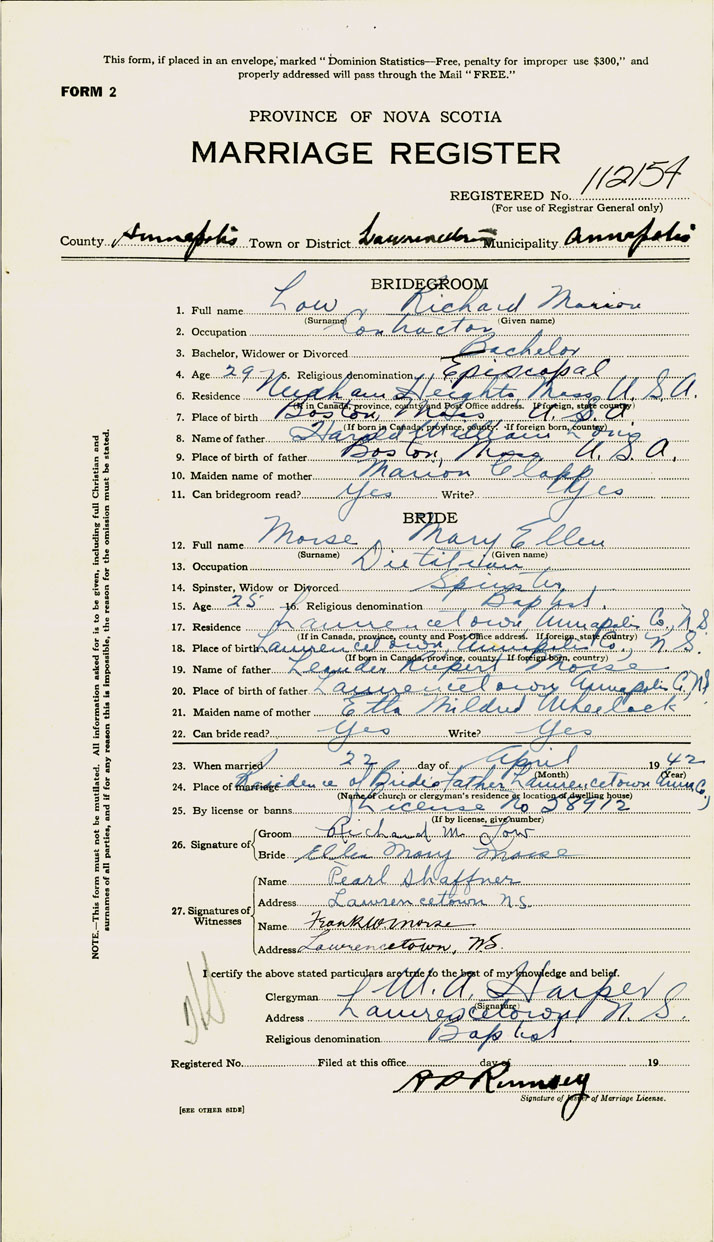 This form, if placed in an envelope, marked "Dominion Statistics—Free, penalty for improper use $300," and
properly addressed will pass through the Mail "FREE."
FORM 2
PROVINCE OF NOVA SCOTIA
MARRIAGE REGISTER
REGISTERED No. 112154
(For use of Registrar General only)
County Annapolis Town or District Lawrencetown Municipality Annapolis
BRIDEGROOM
1. Full name Low Richard Marion
(Surname) (Given name)
2. Occupation Contractor
3. Bachelor, Widower or Divorced Bachelor
4. Age 29 5. Religious denomination Episcopal
6. Residence Needham Heights Mass, U.S.A.
(If in Canada, province, county and Post Office address. If foreign, state country)
7. Place of birth Boston, Mass U.S.A
(If born in Canada, province, county. If foreign born, country)
8. Name of father Harold William
9. Place of birth of father Boston, Mass U.S.A.
10. Maiden name of mother Marion Clapp
11. Can bridegroom read? Yes Write? Yes
BRIDE
12. Full name Morse Mary Ellen
(Surname) (Given name)
13. Occupation Dietitian
14. Spinster, Widow or Divorced Spinster
15. Age 25 16. Religious denomination Baptist
17. Residence Lawrencetown Annapolis Co., N.S.
(If in Canada, province, county and Post Office address. If foreign, state country)
18. Place of birth Lawrencetown, Annapolis Co., N.S.
(If born in Canada, province, county. If foreign born, country)
19. Name of father Leander Rupert Morse
20. Place of birth of father Lawrencetown Annapolis Co, N.S
21. Maiden name of mother Etta Mildred Wheelock
22. Can bride read? Yes Write? Yes
23. When married 22 day of April 1942
(Month) (Year)
24. Place of marriage Residence of Brides father, Lawrencetown Anna Co,
(Name of church or clergyman's residence or location of dwelling house)
25. By license or banns License No 28912
(If by license, give number)
26. Signature of Groom Richard M. Low
Bride Ellen Mary Morse
27. Signatures of Witnesses
Name Pearl Shaffner
Address Lawrencetown N.S.
Name Frank W Morse
Address Lawrencetown, NS.
I certify the above stated particulars are true to the best of my knowledge and belief.
Clergyman W. A. Harper
(Signature)
Address Lawrencetown, N.S.
Religious denomination Baptist
Registered No. Filed at this office day of 19
Signature of Issuer of Marriage License.
[SEE OTHER SIDE]
NOTE.—This form must not be mutilated. All information asked for is to be given, including full Christian and
surnames of all parties, and if for any reason this is impossible, the reason for the omission must be stated.